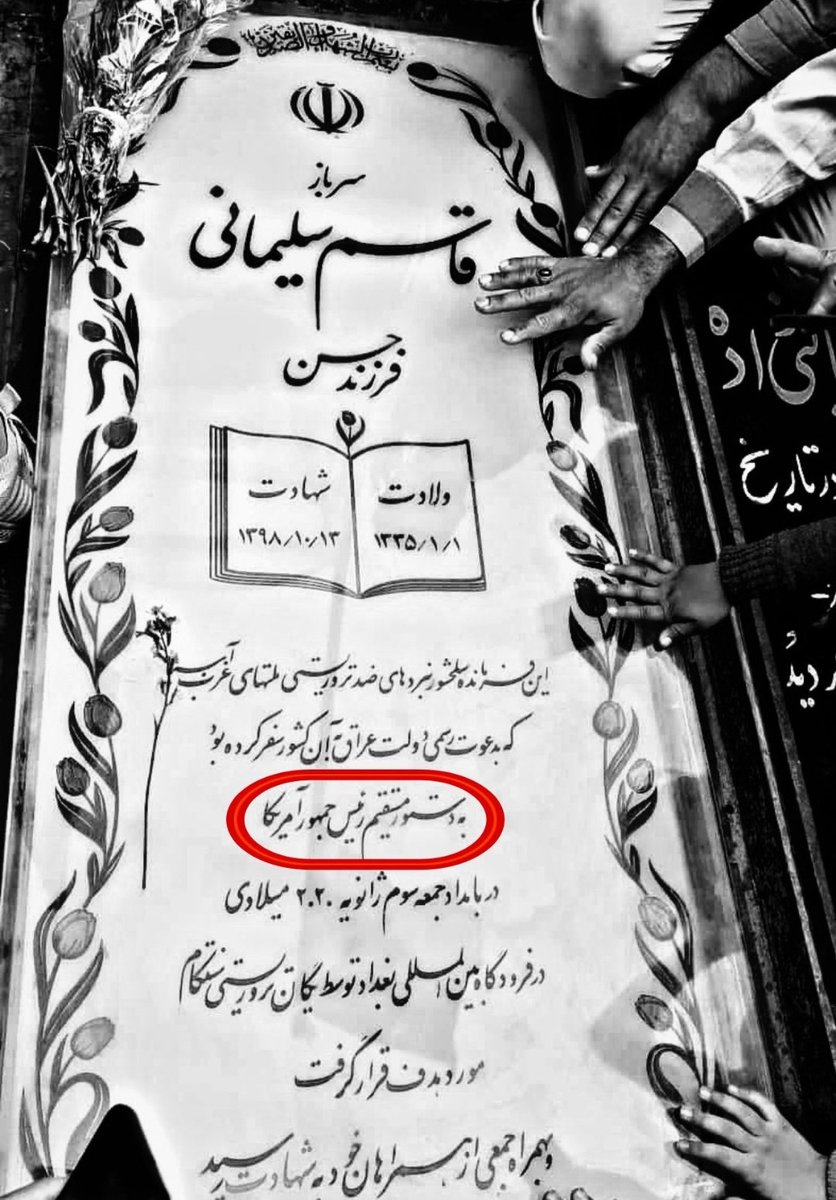 سرباز
قاسم سلیمانی
فرزند حسن
ولادت
۱۳۳۵/۱/۱
شهادت
۱۳۹۸/۱۰/۱۳
این فرمانده سلحشور نبردهای ضد تروریستی ملتهای غرب آسیا
که به دعوت رسمی دولت عراق به آن کشور سفر کرده بود
به دستور مستقیم رئیس جمهور آمریکا
در بامداد جمعه سوم ژانویه ۲۰۲۰ میلادی
در فرودگاه بین المللی بغداد توسط یگان تروریستی سنتکام
مورد هدف قرار گرفت
و بهمراه جمعی از همراهان خود به شهادت رسید
تاریخ
دید